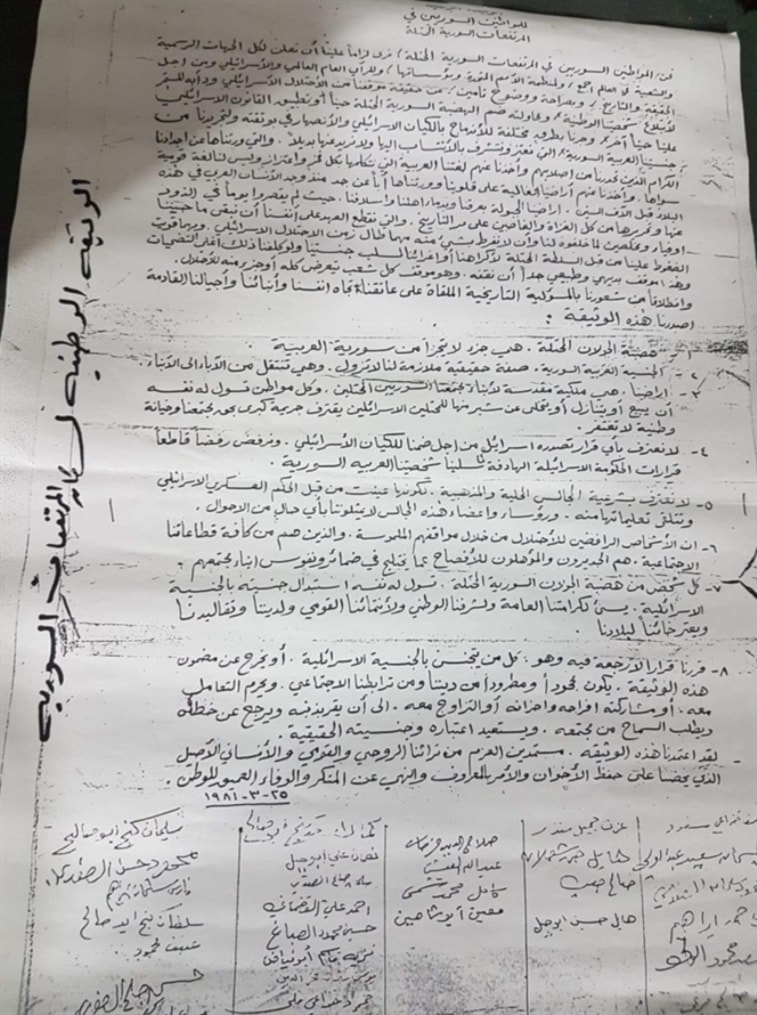 للمواطنين السوريين في
المرتفعات السورية المحتلة
نحن المواطنين السوريين في المرتفعات السورية المحتلة، نرى لزاماً علينا أن نعلن لكل الجهات الرسمية
والشعبية في العالم أجمع، ولمنظمة الأمم المتحدة ومؤسساتها، وللرأي العام العالمي والإسرائيلي ومن أجل
الحقيقة والتاريخ، وبصراحة ووضوح تامين، عن حقيقة موقفنا من الاحتلال الاسرائيلي ودأبه المستمر
لابتلاع شخصيتنا الوطنية، ومحاولته ضم الهضبة السورية المحتلة حيناً أو تطبيق القانون الاسرائيلي
علينا حيناً آخر، وجرنا بطرق مختلفة للاندماج بالكيان الاسرائيلي والانصهار في بوتقته ولتجريدنا من
جنسيتنا العربية السورية، التي نعتز ونتشرف بالانتساب إليها ولا نريد عنها بديلاً. والتي ورثناها عن أجدادنا
الكرام الذين تحدرنا من أصلابهم وأخذنا عنهم لغتنا العربية التي نتكلمها بكل فخر واعتزاز وليس لنا لغة قومية
سواها. وأخذنا عنهم أراضينا الغالية على قلوبنا وورثناها أباً عن جد منذ وجد الانسان العربي في هذه
البلاد قبل آلاف السنين. أراضينا المجبولة بعرقنا وبدماء أهلنا وأسلافنا. حيث لم يقصروا يوماً في الذود
عنها وتحريرها من كل الغزاة والغاصبين على مر التاريخ. والتي نقطع العهد على أنفسنا أن نبقى ما حيينا
أوفياء ومخلصين لما خلفوه لنا وأن لا نفرط بشيء منه مهما طال زمن الاحتلال الاسرائيلي. ومهما قويت
الضغوط علينا من قبل السلطة المحتلة لاكراهنا أو إغرائنا لسلب جنسيتنا ولو كلفنا ذلك أغلى التضحيات
وهذا موقف بديهي وطبيعي جداً أن نقفه. وهو موقف كل شعب يتعرض كله أو جزء منه للاحتلال.
وانطلاقاً من شعورنا بالمسؤولية التاريخية الملقاة على عاتقنا تجاه أنفسنا وأبنائنا وأجيالنا القادمة
أصدرنا هذه الوثيقة :
١- هضبة الجولان المحتلة. هي جزء لا يتجزأ من سورية العربية.
٢- الجنسية العربية السورية. صفة حقيقية ملازمة لنا لا تزول. وهي تنتقل من الآباء إلى الأبناء.
٣- أراضينا. هي ملكية مقدسة لأبناء مجتمعنا السوريين المحتلين. وكل مواطن تسول له نفسه
أن يبيع أو يتنازل أو يتخلى عن شبر منها للمحتلين الاسرائيلين يقترف جريمة كبرى بحق مجتمعنا وخيانة
وطنية لا تغتفر.
٤- لا نعترف بأي قرار تصدره اسرائيل من أجل ضمنا للكيان الاسرائيلي. ونرفض رفضاً قاطعاً
قرارات الحكومة الاسرائيلية الهادفة لسلبنا شخصيتنا العربية السورية.
٥- لا نعترف بشرعية المجالس المحلية والمذهبية. لكونها عينت من قبل الحكم العسكري الاسرائيلي
وتتلقى تعليماتها منه. ورؤساء وأعضاء هذه المجالس لا يمثلوننا بأي حال من الأحوال.
٦- ان الأشخاص الرافضين للاحتلال من خلال مواقفهم الملموسة. والذين هم من كافة قطاعاتنا
الاجتماعية. هم الجديرون والمؤهلون للإفصاح عما يختلج في ضمائر ونفوس أبناء مجتمعهم.
٧- كل شخص من هضبة الجولان السورية المحتلة. تسول له نفسه استبدال جنسيته بالجنسية
الاسرائيلية. يسيء لكرامتنا العامة ولشرفنا الوطني ولانتمائنا القومي ولديننا وتقاليدنا
ويعتبر خائناً لبلادنا.
٨- قررنا قراراً لا رجعة فيه وهو : كل من يتجنس بالجنسية الاسرائيلية. أو يخرج عن مضمون
هذه الوثيقة. يكون مجحوداً ومطروداً من ديننا ومن ترابطنا الاجتماعي. ويحرم التعامل
معه. أو مشاركته أفراحه وأحزانه أو التزاوج معه. الى أن يقر بذنبه ويرجع عن خطئه
ويطلب السماح من مجتمعه. ويستعيد اعتباره وجنسيته الحقيقية.
- لقد اعتمدنا هذه الوثيقة. مستمدين العزم من تراثنا الروحي والقومي والانساني الأصيل
الذي يحضنا على حفظ الإخوان والأمر بالمعروف والنهي عن المنكر والوفاء العميق للوطن.
٢٥-٣-١٩٨١
الوثيقة الوطنية لسكان المرتفعات السورية
سليمان كنج ابو صالح
سلمان كنج ابو صالح
احمد علي القضماني
حسين محمود الصباغ
كامل محمد
معين ابو شاهين
عزت جميل
هايل حسين ابو جبل